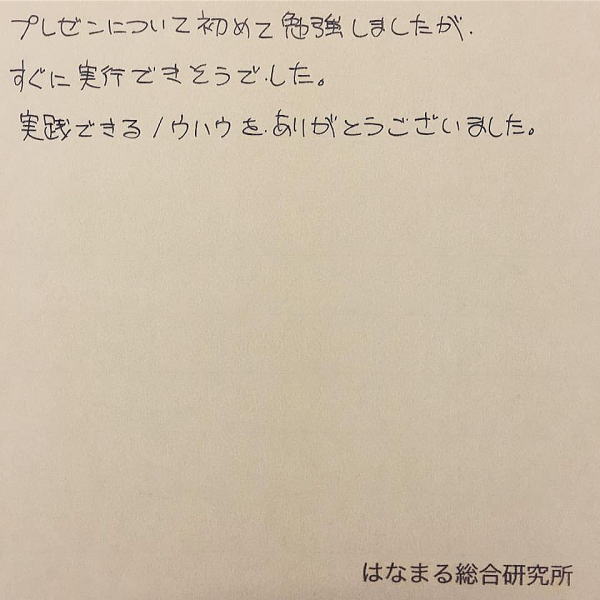 プレゼンについて初めて勉強しましたが、
すぐに実行できそうでした。
実践できるノウハウを、ありがとうございました。
はなまる総合研究所